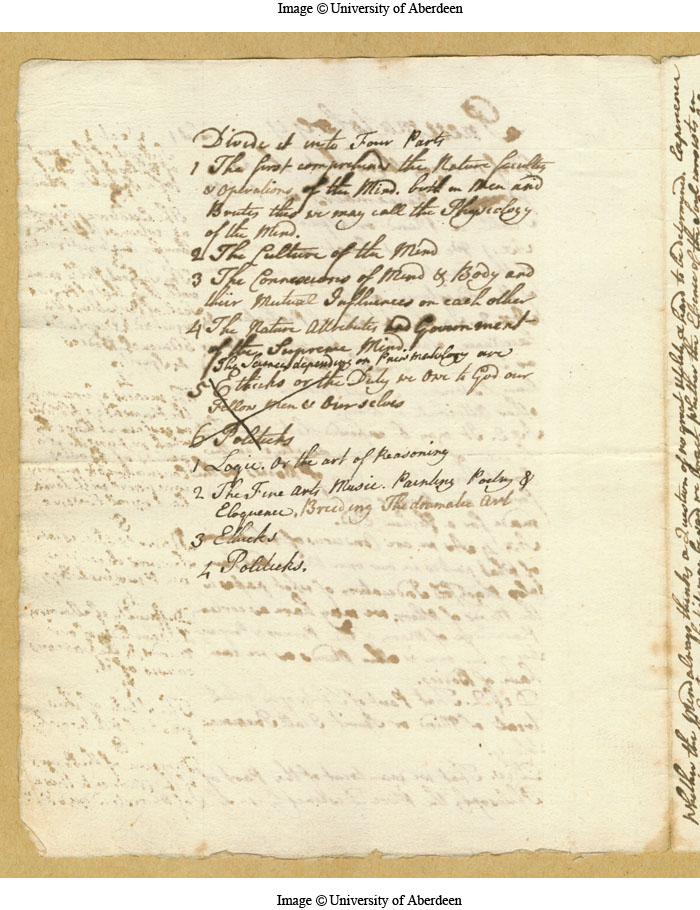 Image © University of Aberdeen
Divide it into Four Parts
1 The first comprehends the Nature faculties
& Operations of the Mind. both in Men and
Brutes this we may call the Physiology
of the Mind.
2 The Culture of the Mind
3 The Connexions of Mind & Body and
their Mutual Influences on each other
4 The Nature Attributes and Government
of the Supreme Mind.
The Sciences depending on Pneumatology are
5 Ethicks or the Duty we Owe to God our
Fellow Men & Ourselves
6 Politicks
1 Logic. Or the art of Reasoning
2 The Fine Arts Music. Painting Poetry &
Eloquence. Breeding The dramatic Art
3 Ethicks
4 Politicks.
Whether the Mind always thinks a Question of no great Utility & hard to be determined. Experience
Image © University of Aberdeen